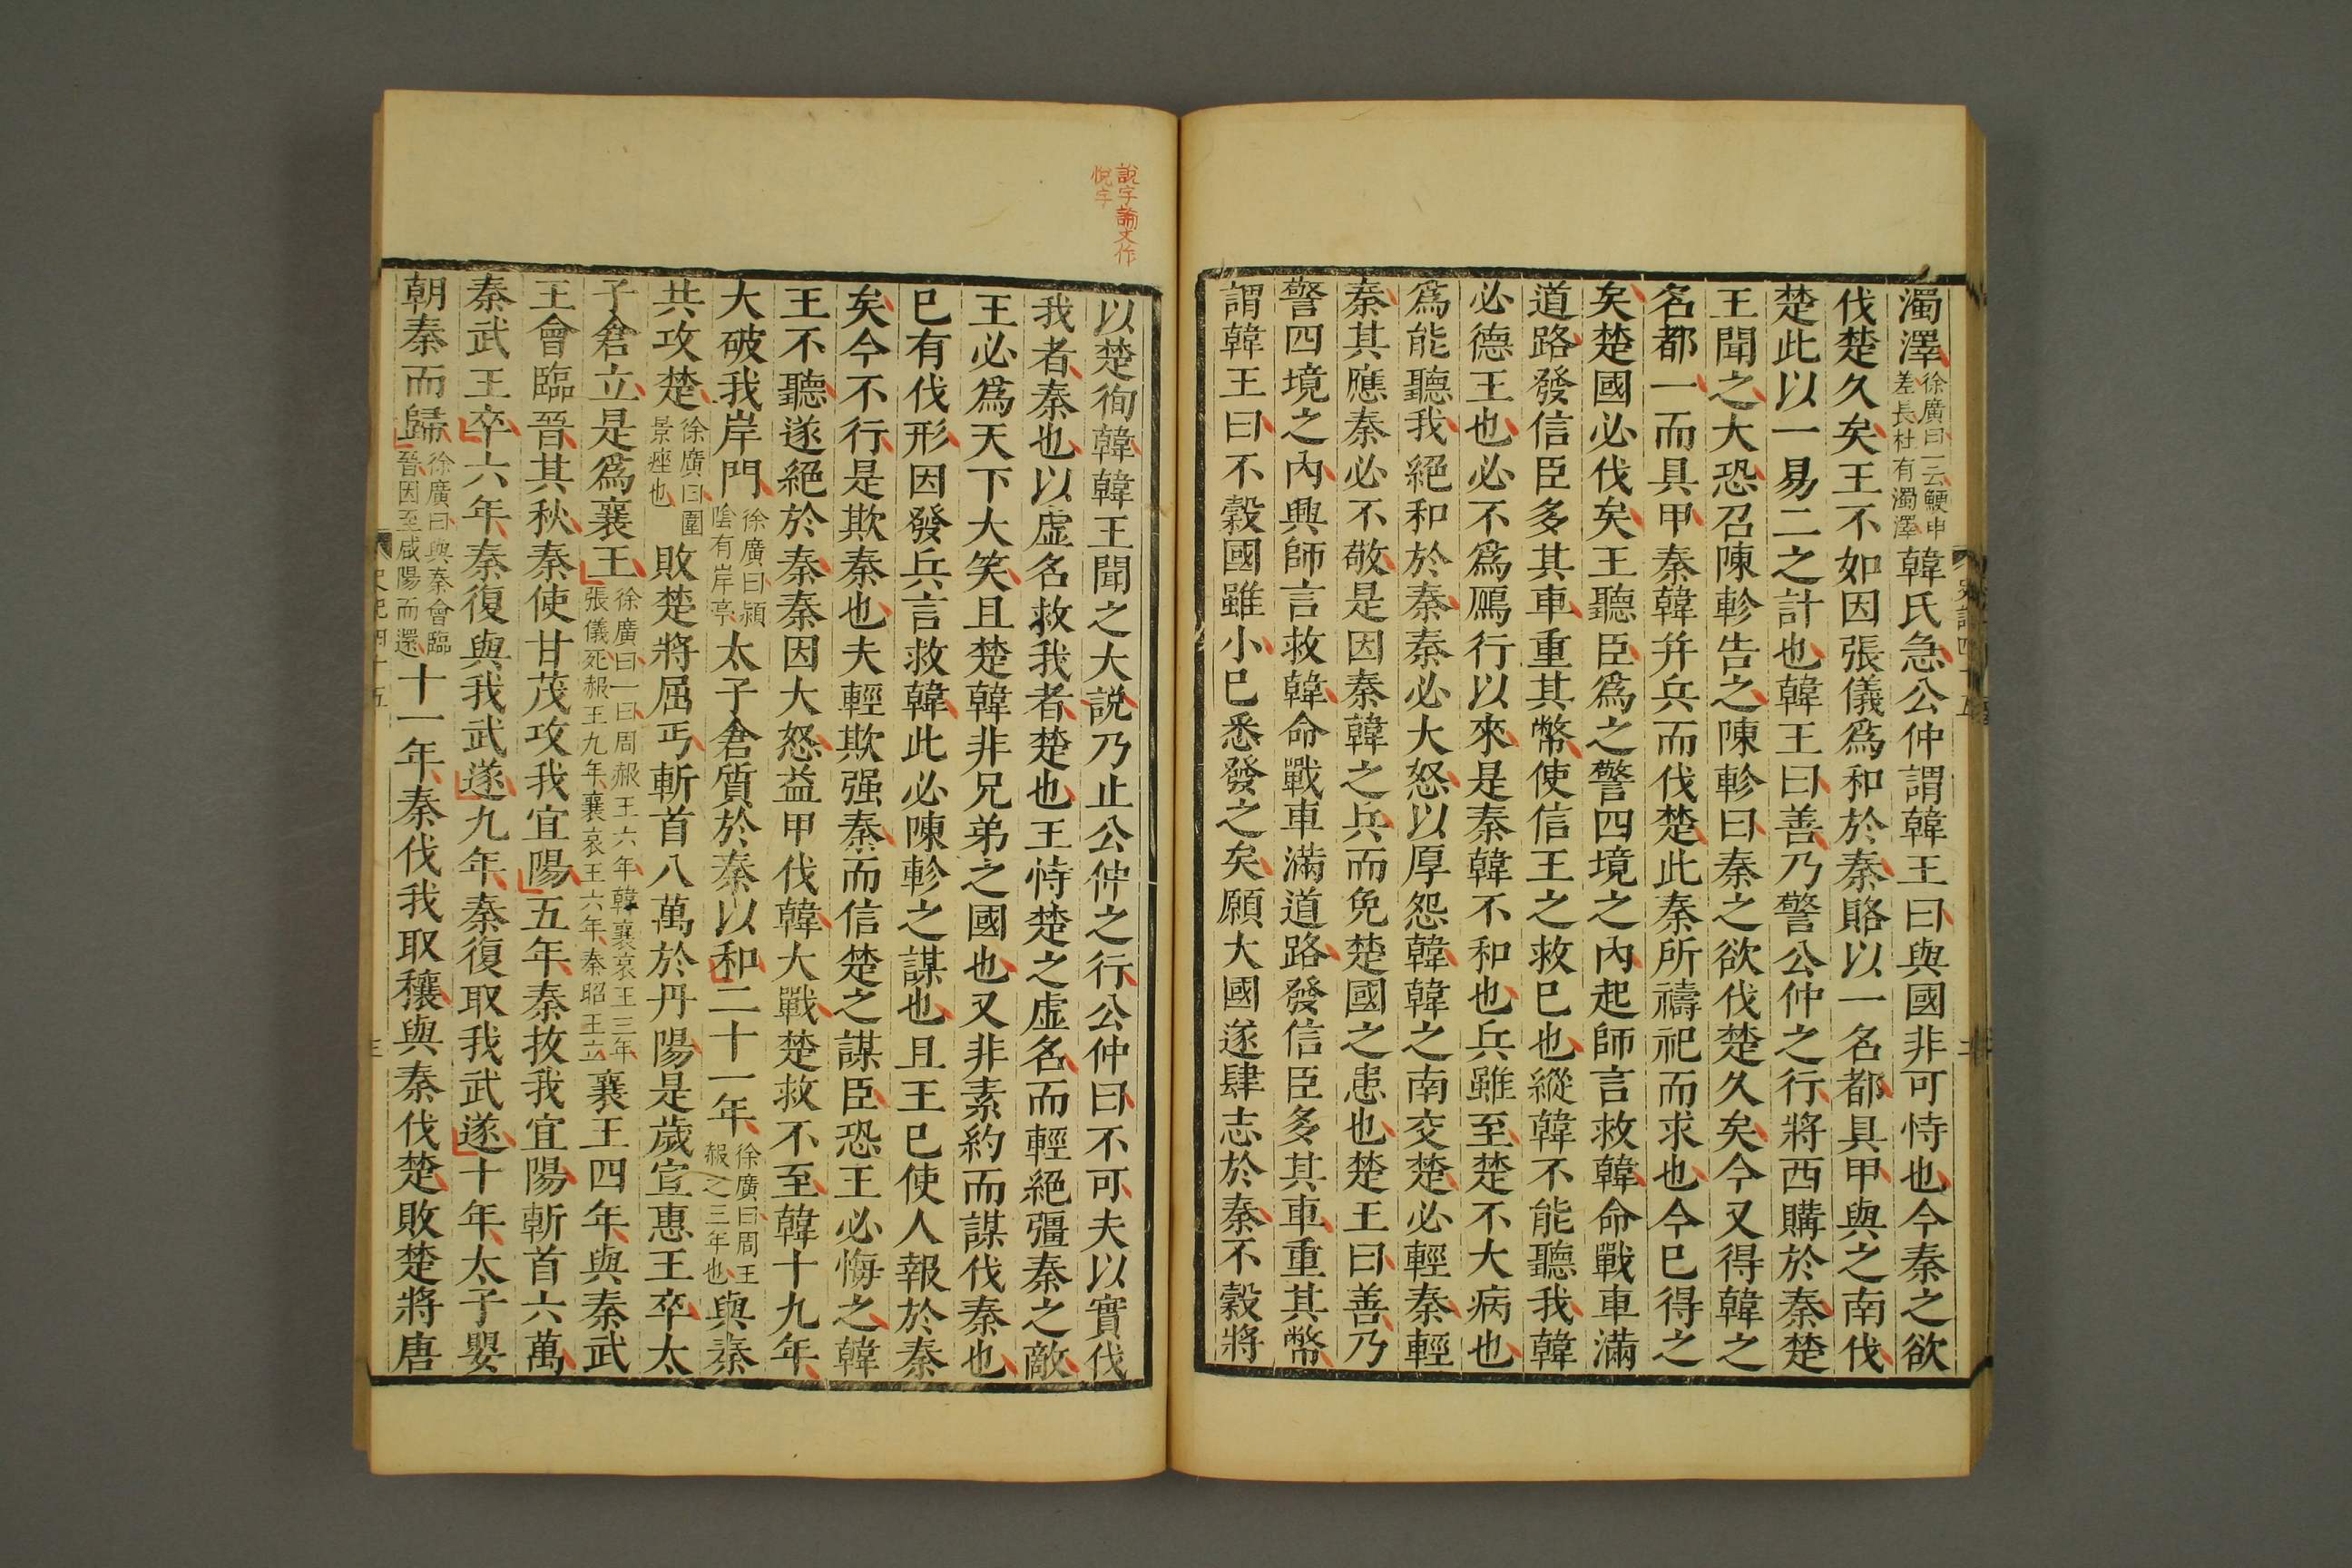 濁澤徐廣曰一云鯁申差長杜有濁澤韓氏急公仲謂韓王曰與國非可恃也今秦之欲
伐楚久矣王不如因張儀爲和於秦賂以一名都具甲與之南伐
楚此以一易二之計也韓王曰善乃警公仲之行將西購於秦楚
王聞之大恐召陳軫告之陳軫曰秦之欲伐楚久矣今又得韓之
名都一而具甲秦韓并兵而伐楚此秦所禱祀而求也今已得之
矣楚國必伐矣王聽臣爲之警四境之內起師言救韓命戰車滿
道路發信臣多其車重其幣使信王之救己也縱韓不能聽我韓
必德王也必不爲鴈行以來是秦韓不和也兵雖至楚不大病也
爲能聽我絕和於秦秦必大怒以厚怨韓韓之南交楚必輕秦輕
秦其應秦必不敬是因秦韓之兵而免楚國之患也楚王曰善乃
警四境之內興師言救韓命戰車滿道路發信臣多其車重其幣
謂韓王曰不穀國雖小已悉發之矣願大國遂肆志於秦不穀將
說字論文作
悅字
以楚徇韓韓王聞之大說乃止公仲之行公仲曰不可夫以實伐
我者秦也以虛名救我者楚也王恃楚之虛名而輕絕彊秦之敵
王必爲天下大笑且楚韓非兄弟之國也又非素約而謀伐秦也
已有伐形因發兵言救韓此必陳軫之謀也且王已使人報於秦
矣今不行是欺秦也夫輕欺强秦而信楚之謀臣恐王必悔之韓
王不聽遂絕於秦秦因大怒益甲伐韓大戰楚救不至韓十九年
大破我岸門徐廣曰潁陰有岸亭太子倉質於秦以和二十一年徐廣曰周王赧之三年也與秦
共攻楚徐廣曰圍景痤也敗楚將屈丐斬首八萬於丹陽是歲宣惠王卒太
子倉立是爲襄王徐廣曰一曰周赧王六年韓襄哀王三年張儀死赧王九年襄哀王六年秦昭王立襄王四年與秦武
王會臨晉其秋秦使甘茂攻我宜陽五年秦拔我宜陽斬首六萬
秦武王卒六年秦復與我武遂九年秦復取我武遂十年太子嬰
朝秦而歸徐廣曰與秦會臨晉因至咸陽而還十一年秦伐我取穰與秦伐楚敗楚將唐
史記四十五
三